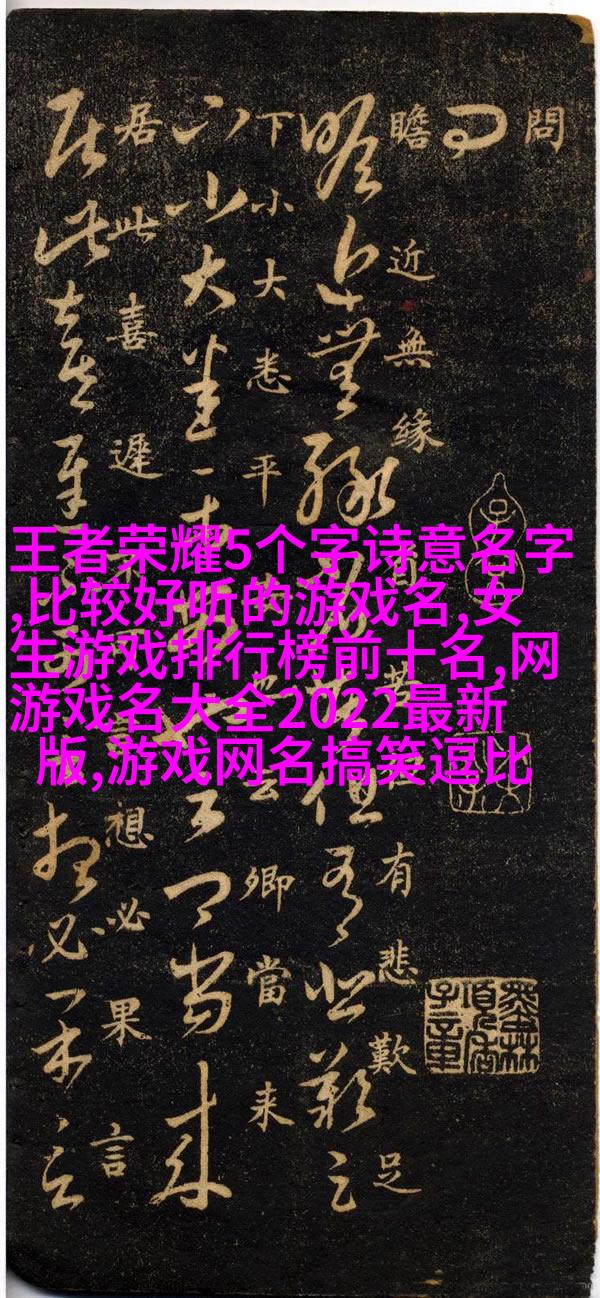 王者荣耀5个字诗意名字
,比较好听的游戏名,女
生游戏排行榜前十名,网
游戏名大全2022最新
版,游戏网名搞笑逗比
問
瞻近無緣省苦但有悲歎足
下小大悉平安也云卿當來
居此喜遲不可言想必果言